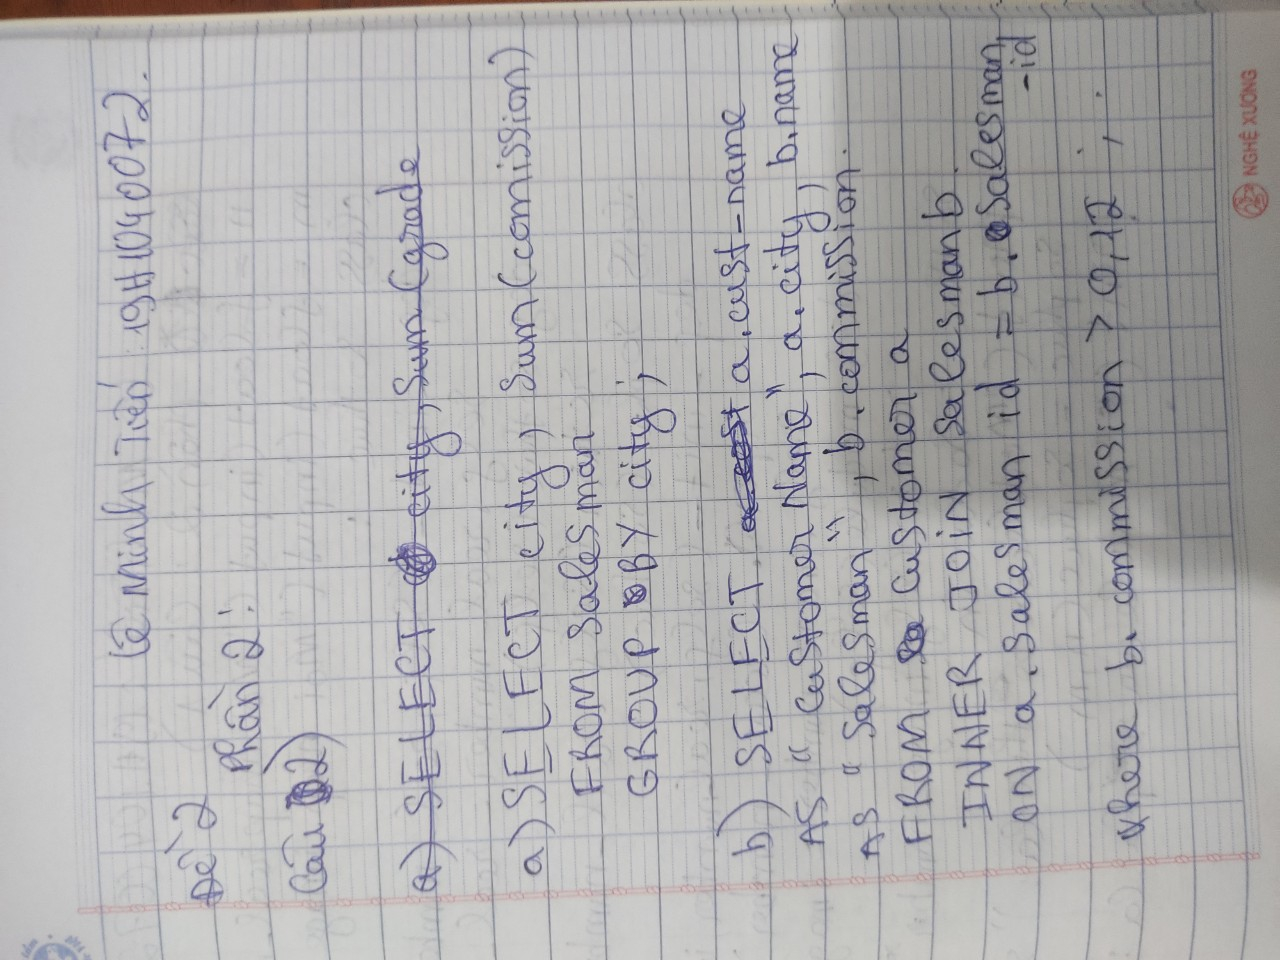 Lê Minh Tiến : 19H1040072.
Đề 2
Phần 2:
Câu 2)
a) SELECT city, Sum(grade
a) SELECT city, Sum(comission)
FROM Salesman
GROUP BY city;
b) SELECT a.cust-name
AS "Customer Name", a.city, b.name
AS "Salesman", b.commission.
FROM Customer a
INNER JOIN Salesman b.
ON a.Salesman id = b.Salesman
-id
where b.commission > 0,12;.
NGHÊ XUONG